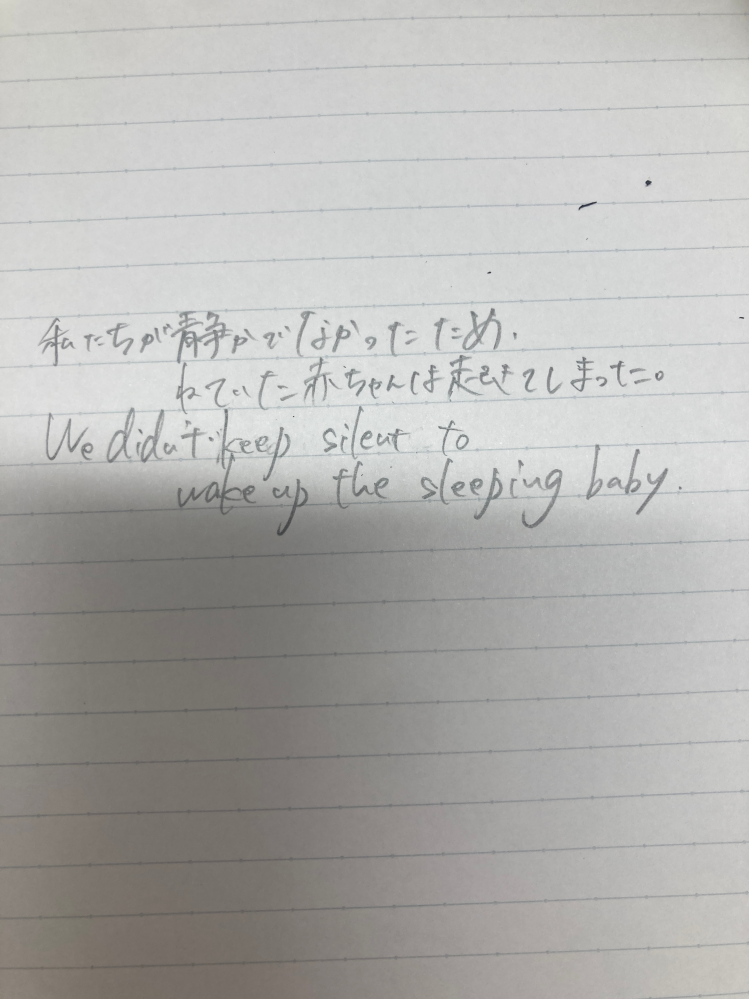 私たちが静かでなかったため、
ねていた赤ちゃんは起きてしまった。
We didn't keep silent to
wake up the sleeping baby.